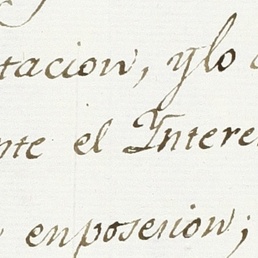 tacion, ylo
nte el Intere
enposesion;